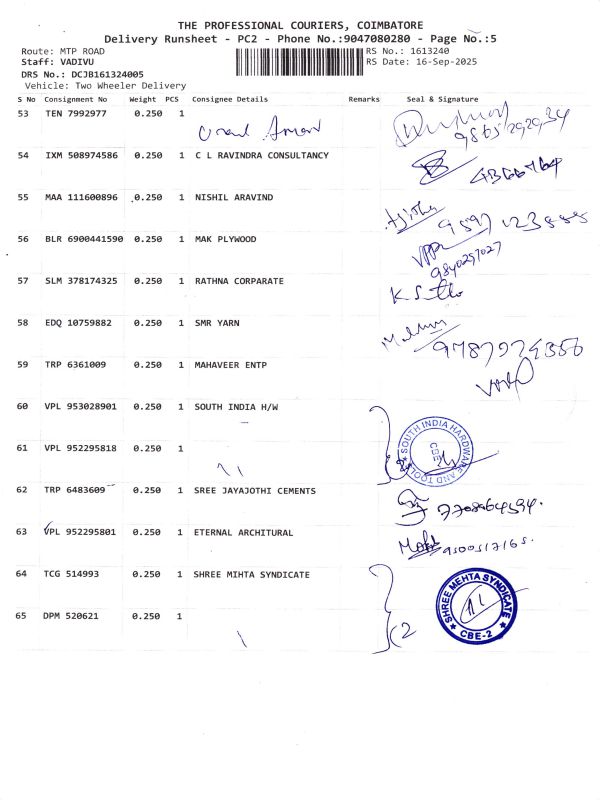 THE PROFESSIONAL COURIERS, COIMBATORE
Delivery Runsheet - PC2 - Phone No.:9047080280 - Page No.:5
Route: MTP ROAD
RS No.: 1613240
Staff: VADIVU
RS Date: 16-Sep-2025
DRS No.: DCJB161324005
Vehicle: Two Wheeler Delivery
S No Consignment No Weight PCS Consignee Details Remarks Seal & Signature
53 TEN 7992977 0.250 1
54 IXM 508974586 0.250 1 C L RAVINDRA CONSULTANCY
55 MAA 111600896 0.250 1 NISHIL ARAVIND
56 BLR 6900441590 0.250 1 MAK PLYWOOD
9840297027
57 SLM 378174325 0.250 1 RATHNA CORPARATE
58 EDQ 10759882 0.250 1 SMR YARN
59 TRP 6361009 0.250 1 MAHAVEER ENTP
60 VPL 953028901 0.250 1 SOUTH INDIA H/W
SOUTH INDIA HARDWARE AND TOOLS
CBE
61 VPL 952295818 0.250 1
62 TRP 6483609 0.250 1 SREE JAYAJOTHI CEMENTS
63 VPL 952295801 0.250 1 ETERNAL ARCHITURAL
9500517165.
64 TCG 514993 0.250 1 SHREE MIHTA SYNDICATE
SHREE MEHTA SYNDICATE
CBE-2
65 DPM 520621 0.250 1
2